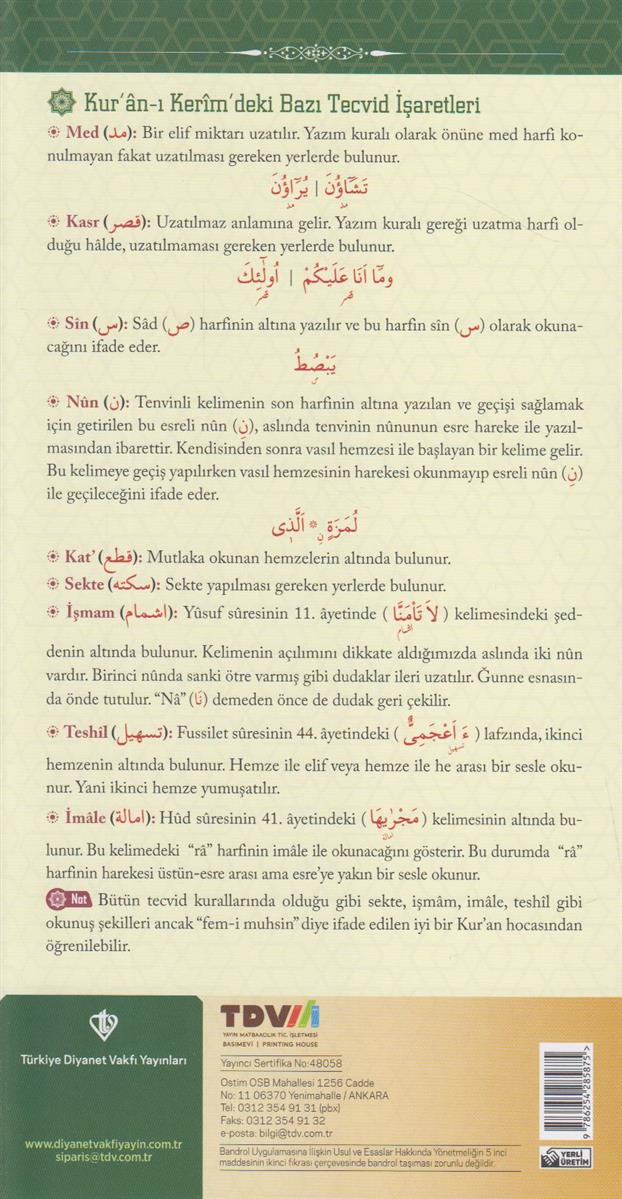 Kur'ân-ı Kerîm'deki Bazı Tecvid İşaretleri
Med (مد): Bir elif miktarı uzatılır. Yazım kuralı olarak önüne med harfi ko-
nulmayan fakat uzatılması gereken yerlerde bulunur.
تَشَٓاؤُنَ | يُرَٓاؤُنَ
مد مد
Kasr (قصر): Uzatılmaz anlamına gelir. Yazım kuralı gereği uzatma harfi ol-
duğu hâlde, uzatılmaması gereken yerlerde bulunur.
وَمَٓا اَنَا عَلَيْكُمْ | اُولٰٓئِكَ
قصر قصر
Sîn (س): Sâd (ص) harfinin altına yazılır ve bu harfin sîn (س) olarak okuna-
cağını ifade eder.
يَبْصُطُ
س
Nûn (ن): Tenvinli kelimenin son harfinin altına yazılan ve geçişi sağlamak
için getirilen bu esreli nûn (نِ), aslında tenvinin nûnunun esre hareke ile yazıl-
masından ibarettir. Kendisinden sonra vasıl hemzesi ile başlayan bir kelime gelir.
Bu kelimeye geçiş yapılırken vasıl hemzesinin harekesi okunmayıp esreli nûn (نِ)
ile geçileceğini ifade eder.
لُمَزَةٍ ۞ اَلَّذ۪ى
ن
Kat' (قطع): Mutlaka okunan hemzelerin altında bulunur.
Sekte (سكته): Sekte yapılması gereken yerlerde bulunur.
İşmam (اشمام): Yûsuf sûresinin 11. âyetinde ( لَا تَأْمَنَّا ) kelimesindeki şed-
اشمام
denin altında bulunur. Kelimenin açılımını dikkate aldığımızda aslında iki nûn
vardır. Birinci nûnda sanki ötre varmış gibi dudaklar ileri uzatılır. Ğunne esnasın-
da önde tutulur. “Nâ” (نَا) demeden önce de dudak geri çekilir.
Teshîl (تسهيل): Fussilet sûresinin 44. âyetindeki ( ءَ اَعْجَمِىٌّ ) lafzında, ikinci
تسهيل
hemzenin altında bulunur. Hemze ile elif veya hemze ile he arası bir sesle oku-
nur. Yani ikinci hemze yumuşatılır.
İmâle (امالة): Hûd sûresinin 41. âyetindeki ( مَجْرٰۭيهَا ) kelimesinin altında bu-
امالة
lunur. Bu kelimedeki “râ” harfinin imâle ile okunacağını gösterir. Bu durumda “râ”
harfinin harekesi üstün-esre arası ama esre’ye yakın bir sesle okunur.
Not Bütün tecvid kurallarında olduğu gibi sekte, işmâm, imâle, teshîl gibi
okunuş şekilleri ancak “fem-i muhsin” diye ifade edilen iyi bir Kur’an hocasından
öğrenilebilir.
Türkiye Diyanet Vakfı Yayınları
www.diyanetvakfiyayin.com.tr
siparis@tdv.com.tr
TDV
YAYIN MATBAACILIK TİC. İŞLETMESİ
BASIMEVİ | PRINTING HOUSE
Yayıncı Sertifika No:48058
Ostim OSB Mahallesi 1256 Cadde
No: 11 06370 Yenimahalle / ANKARA
Tel: 0312 354 91 31 (pbx)
Faks: 0312 354 91 32
e-posta: bilgi@tdv.com.tr
Bandrol Uygulamasına İlişkin Usul ve Esaslar Hakkında Yönetmeliğin 5 inci
maddesinin ikinci fıkrası çerçevesinde bandrol taşıması zorunlu değildir.
9 786254 285875
YERLİ
ÜRETİM